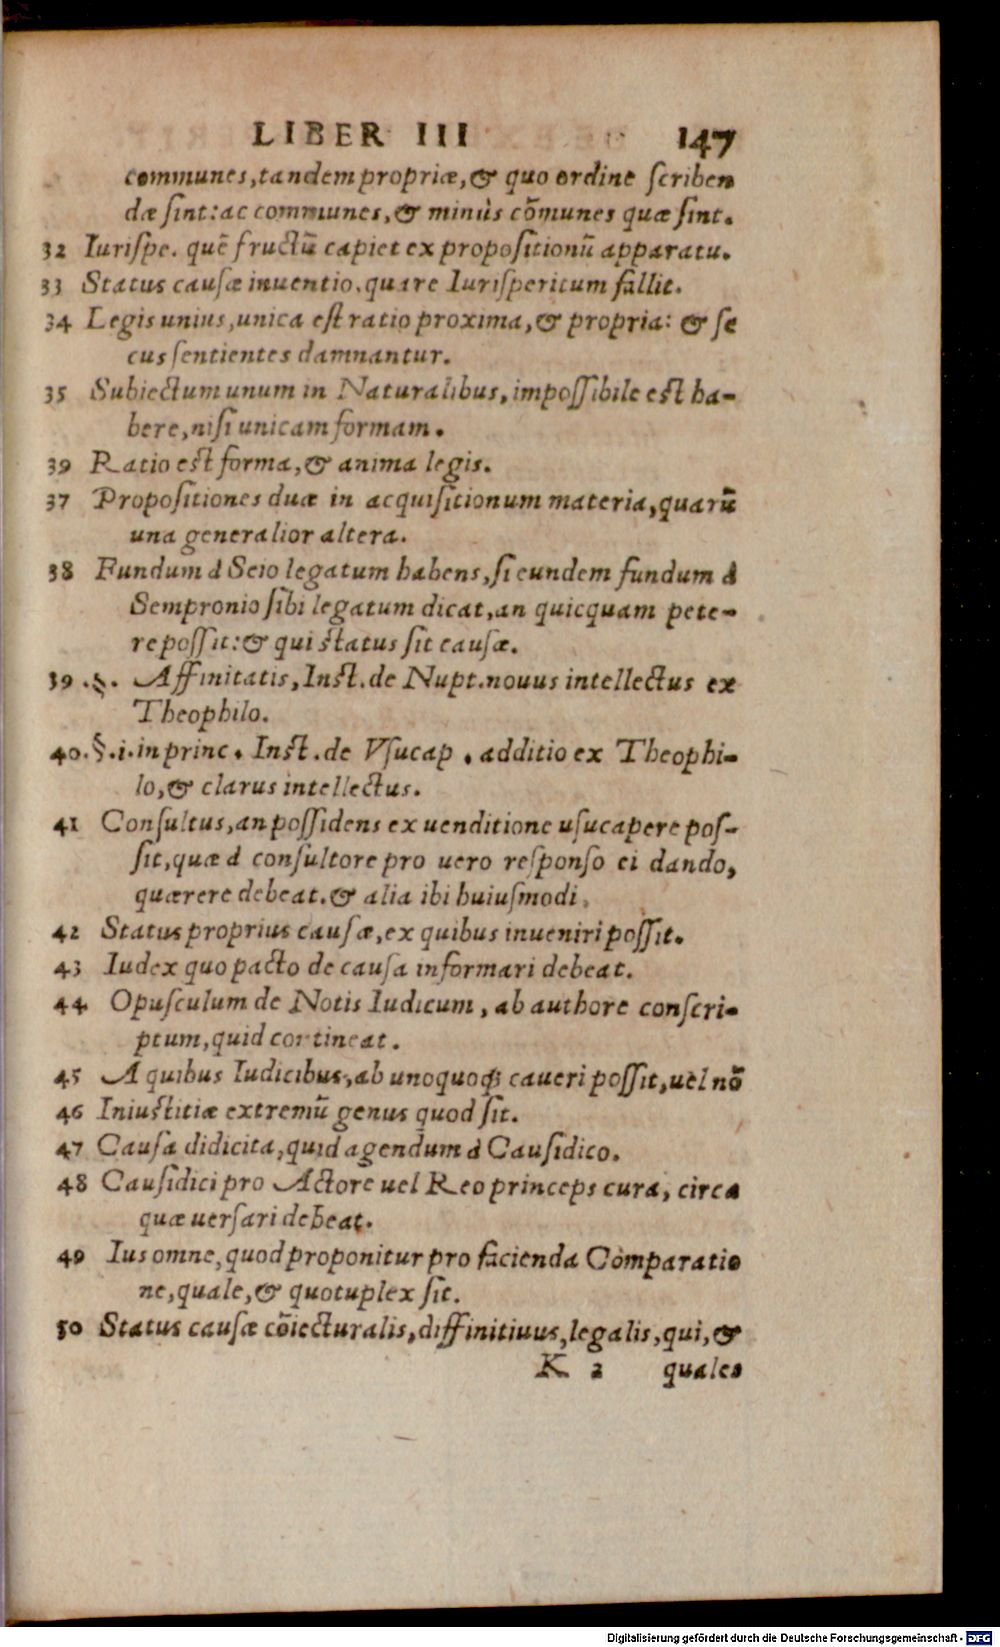 LIBER III 147
communes, tandem propriæ, & quo ordine ſcriben
dæ ſint: ac communes, & minùs cõmunes quæ ſint.
32 Iuriſpe. quẽ fructũ capiet ex propoſitionũ apparatu.
33 Status cauſæ inuentio. quare Iuriſperitum fallit.
34 Legis unius, unica eſt ratio proxima, & propria: & ſe
cus ſentientes damnantur.
35 Subiectum unum in Naturalibus, impoſſibile eſt ha-
bere, niſi unicam formam.
39 Ratio eſt forma, & anima legis.
37 Propoſitiones duæ in acquiſitionum materia, quarũ
una generalior altera.
38 Fundum à Seio legatum habens, ſi eundem fundum à
Sempronio ſibi legatum dicat, an quicquam pete-
re poſſit: & qui ſtatus ſit cauſæ.
39 .§. Affinitatis, Inſt. de Nupt. nouus intellectus ex
Theophilo.
40.§.i. in princ. Inſt. de Vſucap. additio ex Theophi-
lo, & clarus intellectus.
41 Conſultus, an poſſidens ex uenditione uſucapere poſ-
ſit, quæ à conſultore pro uero reſponſo ei dando,
quærere debeat. & alia ibi huiuſmodi.
42 Status proprius cauſæ, ex quibus inueniri poſſit.
43 Iudex quo pacto de cauſa informari debeat.
44 Opuſculum de Notis Iudicum, ab authore conſcri-
ptum, quid cortineat.
45 A quibus Iudicibus, ab unoquoq; caueri poſſit, uel nõ
46 Iniuſtitiæ extremũ genus quod ſit.
47 Cauſa didicita, quid agendum à Cauſidico.
48 Cauſidici pro Actore uel Reo princeps cura, circa
quæ uerſari debeat.
49 Ius omne, quod proponitur pro facienda Comparatio
ne, quale, & quotuplex ſit.
50 Status cauſæ cõiecturalis, diffinitiuus, legalis, qui, &
K 2 quales
Digitalisierung gefördert durch die Deutsche Forschungsgemeinschaft - DFG